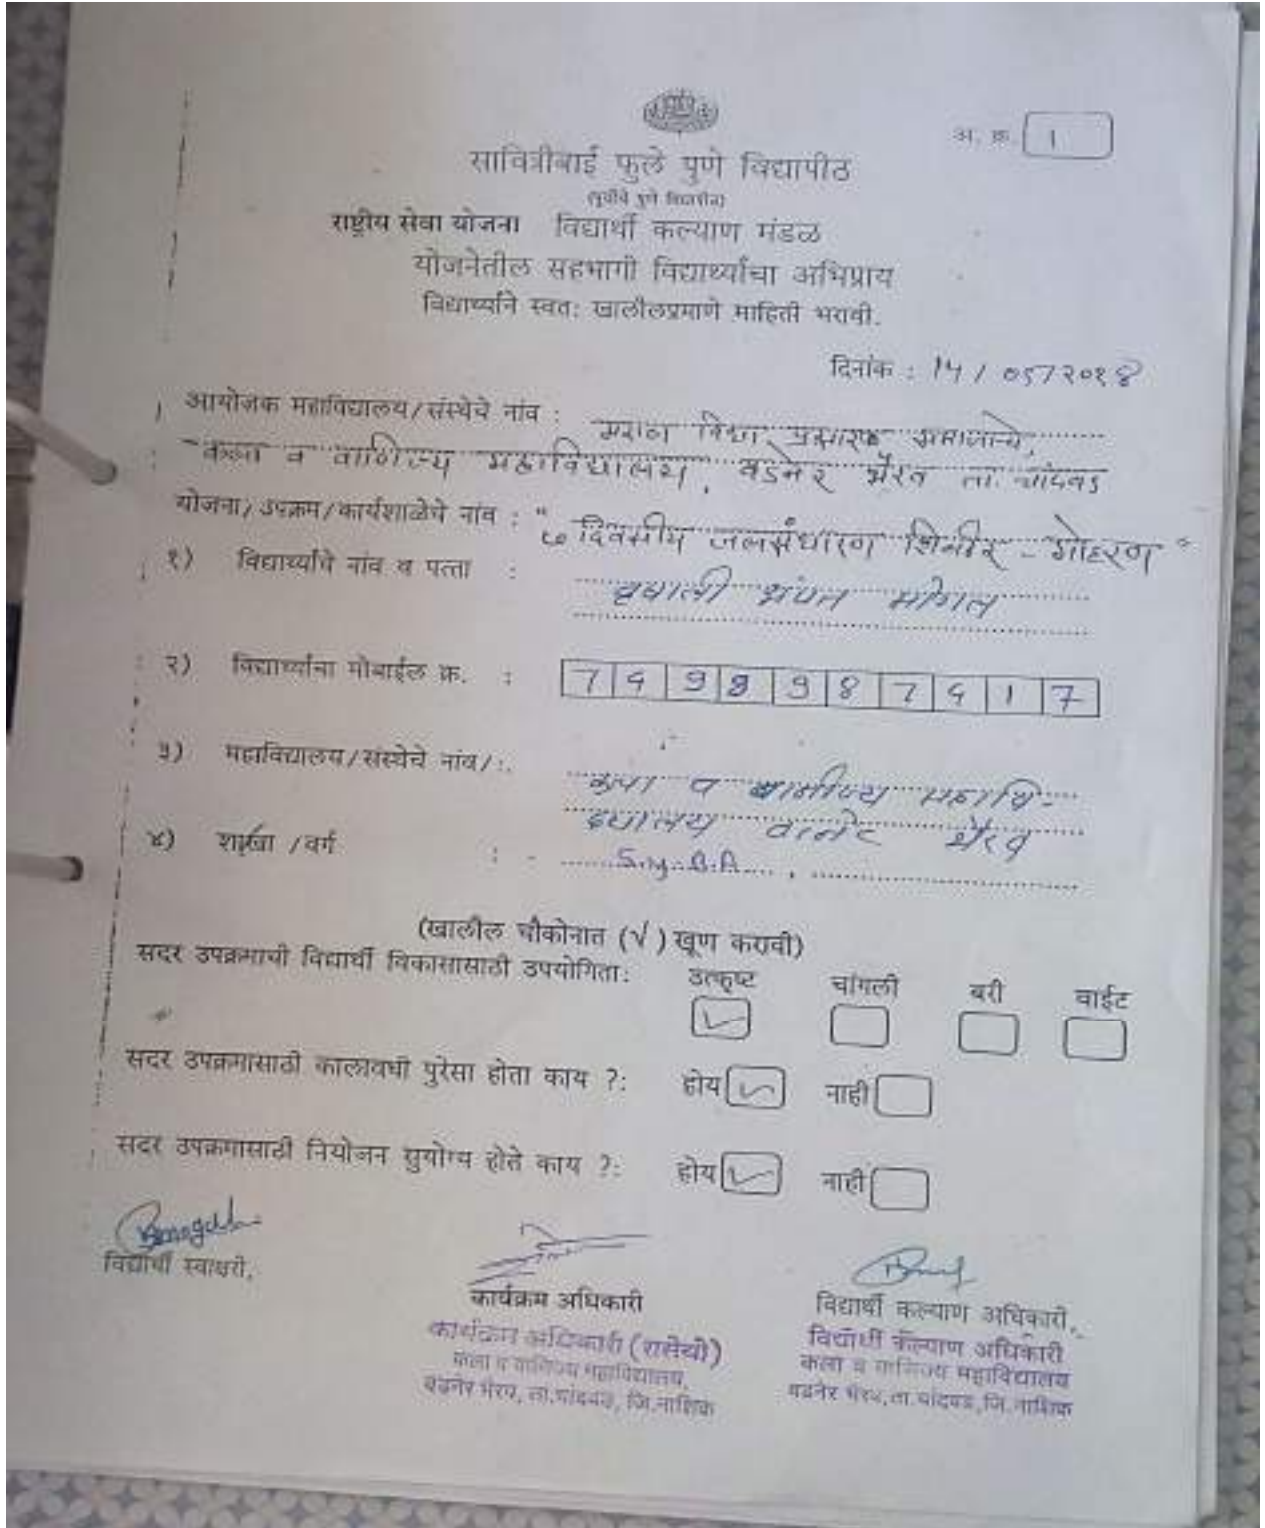 अ. क्र. 1
सावित्रीबाई फुले पुणे विद्यापीठ
(पूर्वीचे पुणे विद्यापीठ)
राष्ट्रीय सेवा योजना विद्यार्थी कल्याण मंडळ
योजनेतील सहभागी विद्यार्थ्यांचा अभिप्राय
विद्यार्थ्याने स्वतः खालीलप्रमाणे माहिती भरावी.
दिनांक : 14 / 05 / २०१8
आयोजक महाविद्यालय/संस्थेचे नांव : मराठा विद्या प्रसारक समाजाचे,
कला व वाणिज्य महाविद्यालय, वडनेर भैरव ता. चांदवड
योजना/उपक्रम/कार्यशाळेचे नांव : "७ दिवसीय जलसंधारण शिबीर - गोहरण"
१) विद्यार्थ्याचे नांव व पत्ता : वृषाली संपत मोगल
२) विद्यार्थ्याचा मोबाईल क्र. :
३) महाविद्यालय/संस्थेचे नांव/:. कला व वाणीज्य महावि-
द्यालय वडनेर भैरव
४) शाखा /वर्ग : - S.y.B.A.
(खालील चौकोनात (√) खूण करावी)
सदर उपक्रमाची विद्यार्थी विकासासाठी उपयोगिता: उत्कृष्ट चांगली बरी वाईट
सदर उपक्रमासाठी कालावधी पुरेसा होता काय ?: होय नाही
सदर उपक्रमासाठी नियोजन सुयोग्य होते काय ?: होय नाही
विद्यार्थी स्वाक्षरी,
कार्यक्रम अधिकारी
कार्यक्रम अधिकारी (रासेयो)
कला व वाणिज्य महाविद्यालय,
वडनेर भैरव, ता.चांदवड, जि.नाशिक
विद्यार्थी कल्याण अधिकारी,
विद्यार्थी कल्याण अधिकारी
कला व वाणिज्य महाविद्यालय
वडनेर भैरव,ता.चांदवड,जि.नाशिक